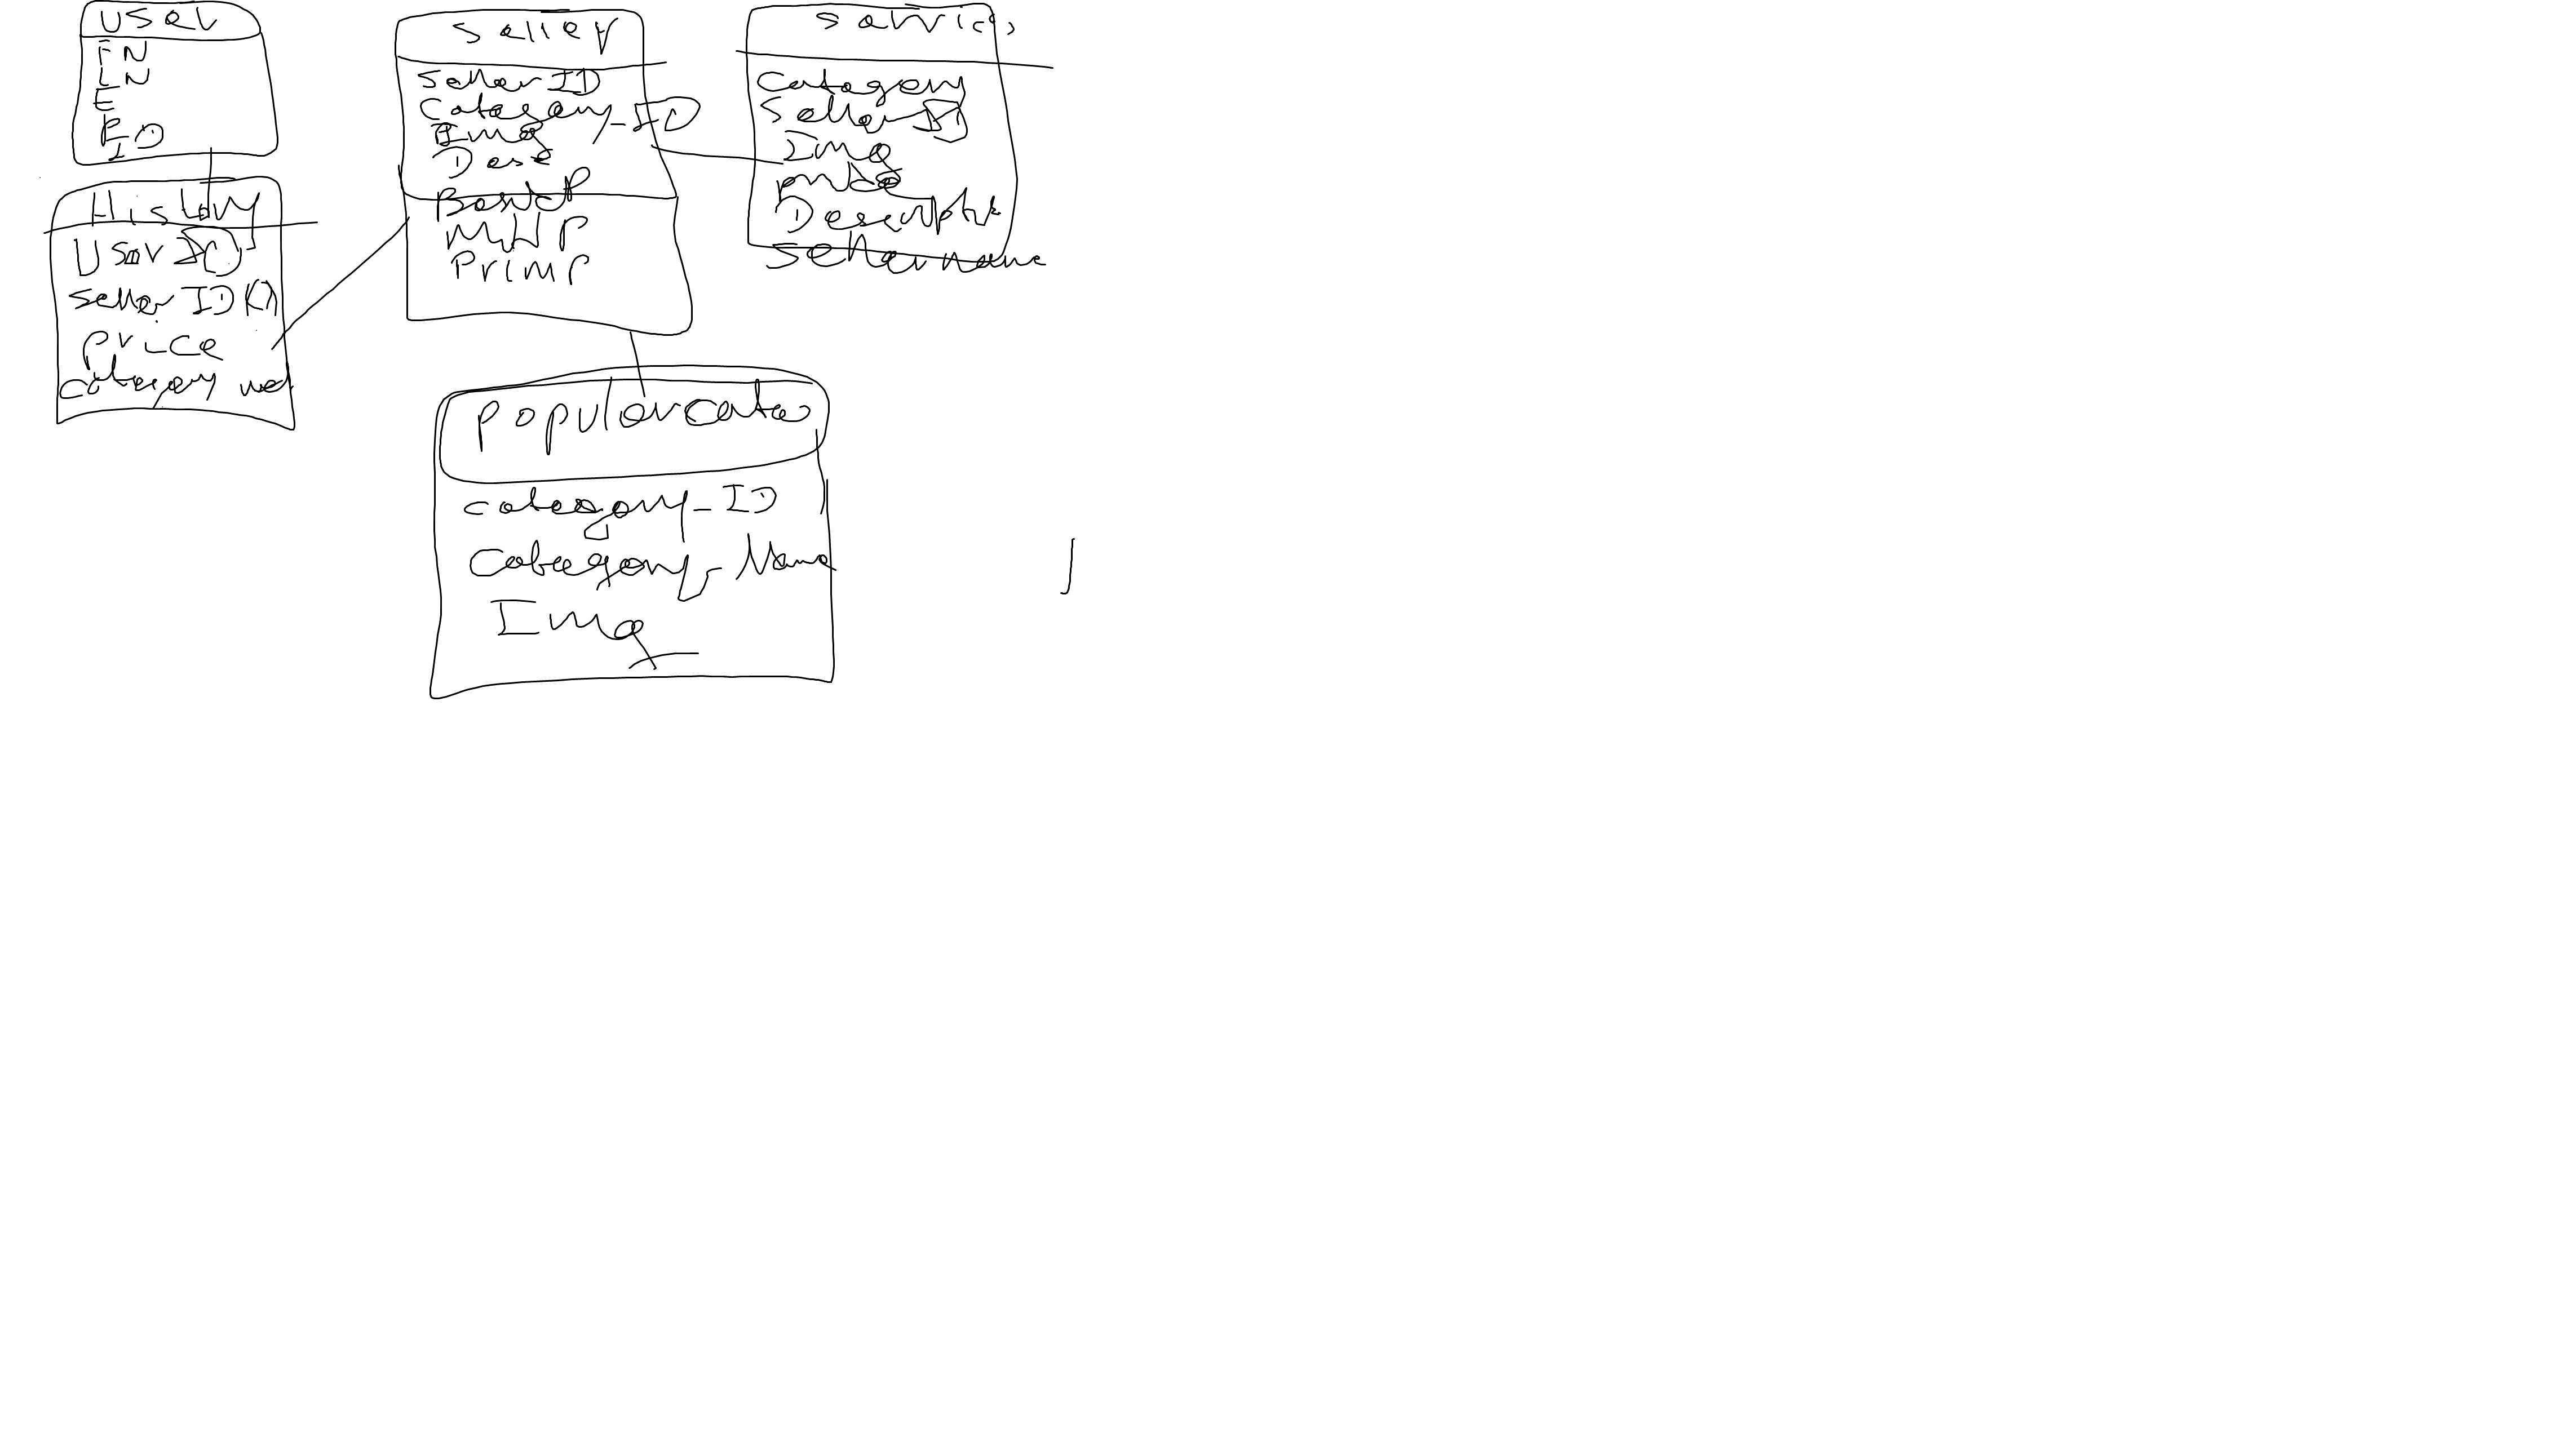 User
FN
LN
E
P
ID
History
User ID
Seller ID
Price
category
Seller
Seller ID
Category_ID
Img
Desc
BasicP
MidP
PrimP
Services
Category
Seller ID
Img
price
Seller name
Popular Cate
category_ID
Category_Name
Img